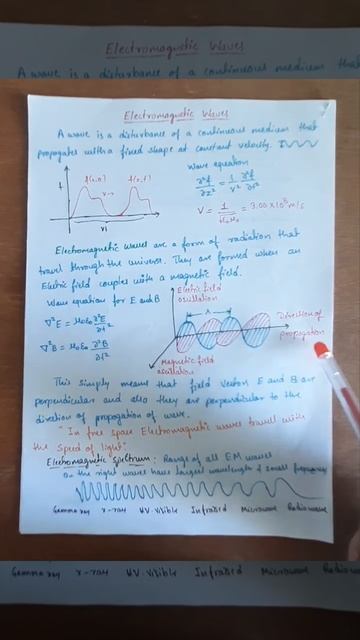 Electromagnetic Waves
A wave is a disturbance of a continuous medium that
Electromagnetic Waves
A wave is a disturbance of a continuous medium that
propagates with a fixed shape at constant velocity.
Wave equation
∂²f/∂z² = 1/v² ∂²f/∂t²
V = 1/√ε₀μ₀ = 3.00 × 10⁸ m/s
f
f(z,0)
f(z,t)
v→
vt
Electromagnetic waves are a form of radiation that
travel through the universe. They are formed when an
Electric field couples with a magnetic field.
Wave equation for E and B
∇²E = μ₀ε₀ ∂²E/∂t²
∇²B = μ₀ε₀ ∂²B/∂t²
Electric field
oscillation
λ
Direction of
propagation
Magnetic field
oscillation
This simply means that field vectors E and B are
perpendicular and also they are perpendicular to the
direction of propagation of wave.
"In free space Electromagnetic waves travel with
the speed of light"
Electromagnetic spectrum: Range of all EM waves
On the right waves have largest wavelength & small frequency
Gamma ray X-ray UV Visible Infrared Microwave Radiowave
Gamma ray X-ray UV Visible Infrared Microwave Radiowave